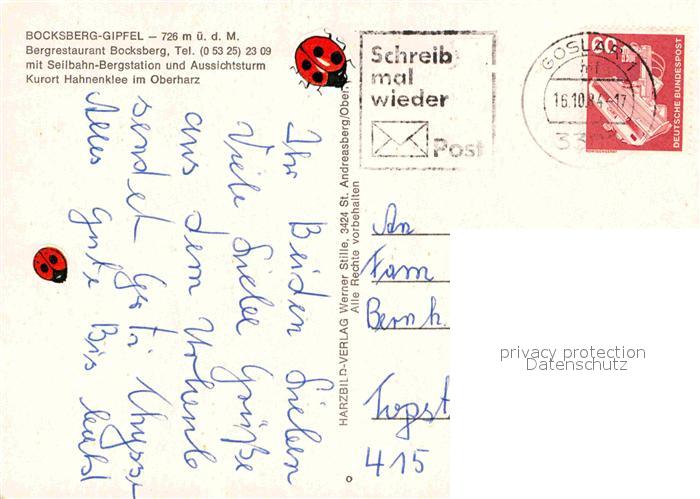 BOCKSBERG-GIPFEL – 726 m ü. d. M.
Bergrestaurant Bocksberg, Tel. (0 53 25) 23 09
mit Seilbahn-Bergstation und Aussichtsturm
Kurort Hahnenklee im Oberharz
Schreib
mal
wieder
Post
GOSLAR 1
16.10.84-17
60
DEUTSCHE BUNDESPOST
Ihr Beiden Lieben
Viele Liebe Grüße
aus dem Urlaub
sendet
Alles Gute Bis bald
HARZBILD-VERLAG Werner Stille, 3424 St. Andreasberg/Ober
Alle Rechte vorbehalten
An
Fam
Bernh.
415
privacy protection
Datenschutz